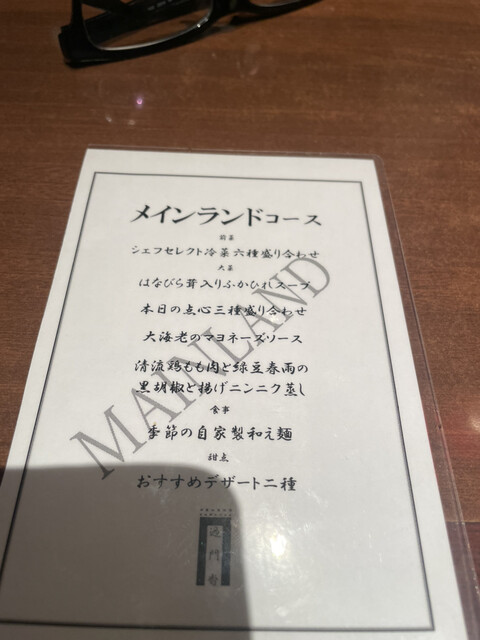 メインランドコース
前菜
シェフセレクト冷菜六種盛り合わせ
大菜
はなびら茸入りふかひれスープ
本日の点心三種盛り合わせ
大海老のマヨネーズソース
清流鶏もも肉と緑豆春雨の
黒胡椒と揚げニンニク蒸し
食事
季節の自家製和え麺
甜点
おすすめデザート二種
MAINLAND